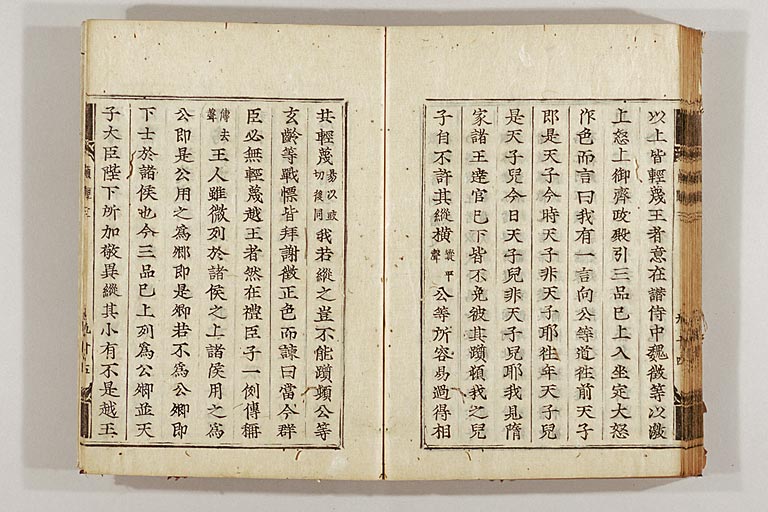 以上皆輕蔑王者意在譖侍中魏徵等以激
上怒上御齊政殿引三品已上入坐定大怒
作色而言曰我有一言向公等道往前天子
即是天子今時天子非天子耶往年天子兒
是天子兒今日天子兒非天子兒耶我見隋
家諸王達官已下皆不免被其躓頓我之兒
子自不許其縱橫縱平聲公等所容易過得相
共輕蔑易以豉切後同我若縱之豈不能躓頓公等
玄齡等戰慄皆拜謝徵正色而諫曰當今群
臣必無輕蔑越王者然在禮臣子一例傳稱
傳去聲王人雖微列於諸侯之上諸侯用之為
公即是公用之為卿即是卿若不為公卿即
下士於諸侯也今三品已上列為公卿並天
子大臣陛下所加敬異縱其小有不是越王